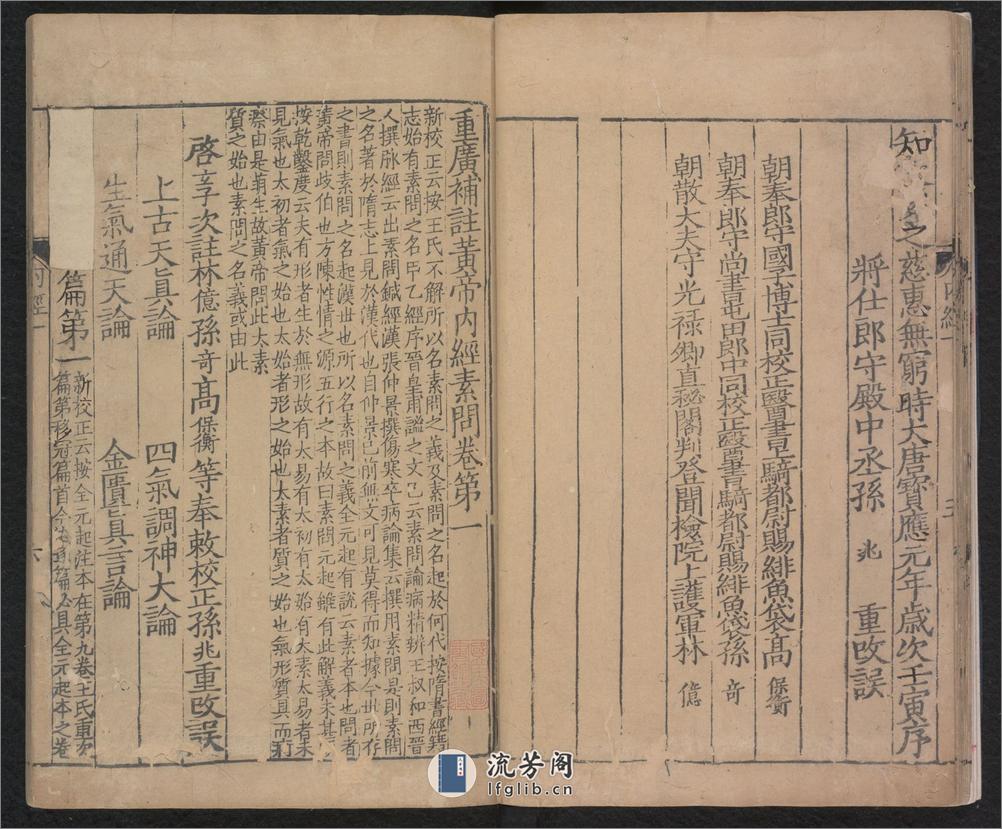 知
之慈惠無窮時大唐寶應元年歲次壬寅序
將仕郎守殿中丞孫 兆 重改誤
朝奉郎守國子博士同校正醫書上騎都尉賜緋魚袋髙 保衡
朝奉郎守尚書屯田郎中同校正醫書騎都尉賜緋魚袋孫 奇
朝散大夫守光祿卿直秘閣判登聞檢院上護軍林 億
重廣補註黃帝内經素問卷第一
新校正云按王氏不解所以名素問之義及素問之名起於何代按隋書經籍
志始有素問之名甲乙經序晉皇甫謐之文已云素問論病精辨王叔和西晉
人撰脉經云出素問鍼經漢張仲景撰傷寒卒病論集云撰用素問是則素問
之名著於隋志上見於漢代也自仲景已前無文可見莫得而知據今世所存
之書則素問之名起漢世也所以名素問之義全元起有說云素者本也問者
黃帝問歧伯也方陳性情之源五行之本故曰素問元起雖有此解義未甚明
按乾鑿度云夫有形者生於無形故有太易有太初有太始有太素太易者未
見氣也太初者氣之始也太始者形之始也太素者質之始也氣形質具而痾
瘵由是萌生故黃帝問此太素
質之始也素問之名義或由此
啓玄子次註林億孫奇髙保衡等奉敕校正孫兆重改誤
上古天真論 四氣調神大論
生氣通天論 金匱真言論
篇第一
新校正云按全元起注本在第九卷王氏重次
篇第移冠篇首今注逐篇必具全元起本之卷
内經一
流芳阁
lfglib.cn